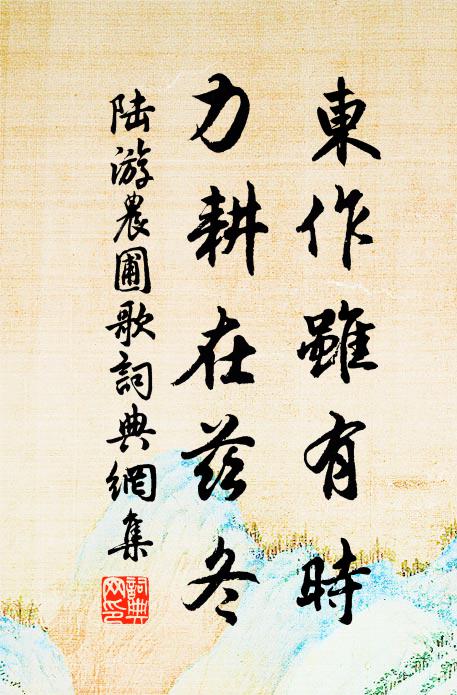 東作雖有時
力耕在茲冬
陸游農圃歌詞典網集
詞典